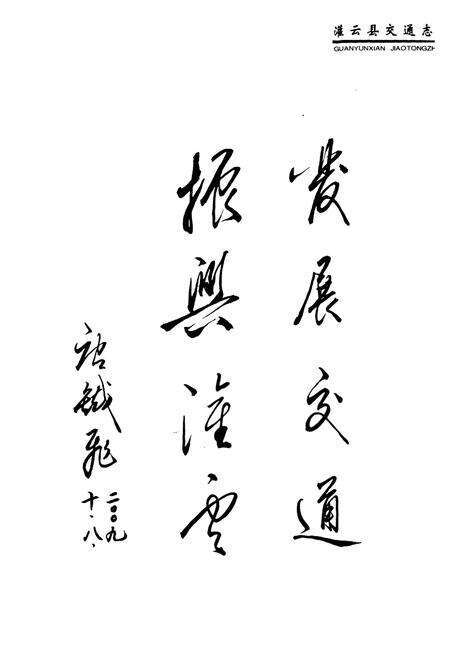 灌云县交通志
GUANYUNXIAN JIAOTONGZH
發展交通
振興灌雲
飛
二〇〇九
十.八.